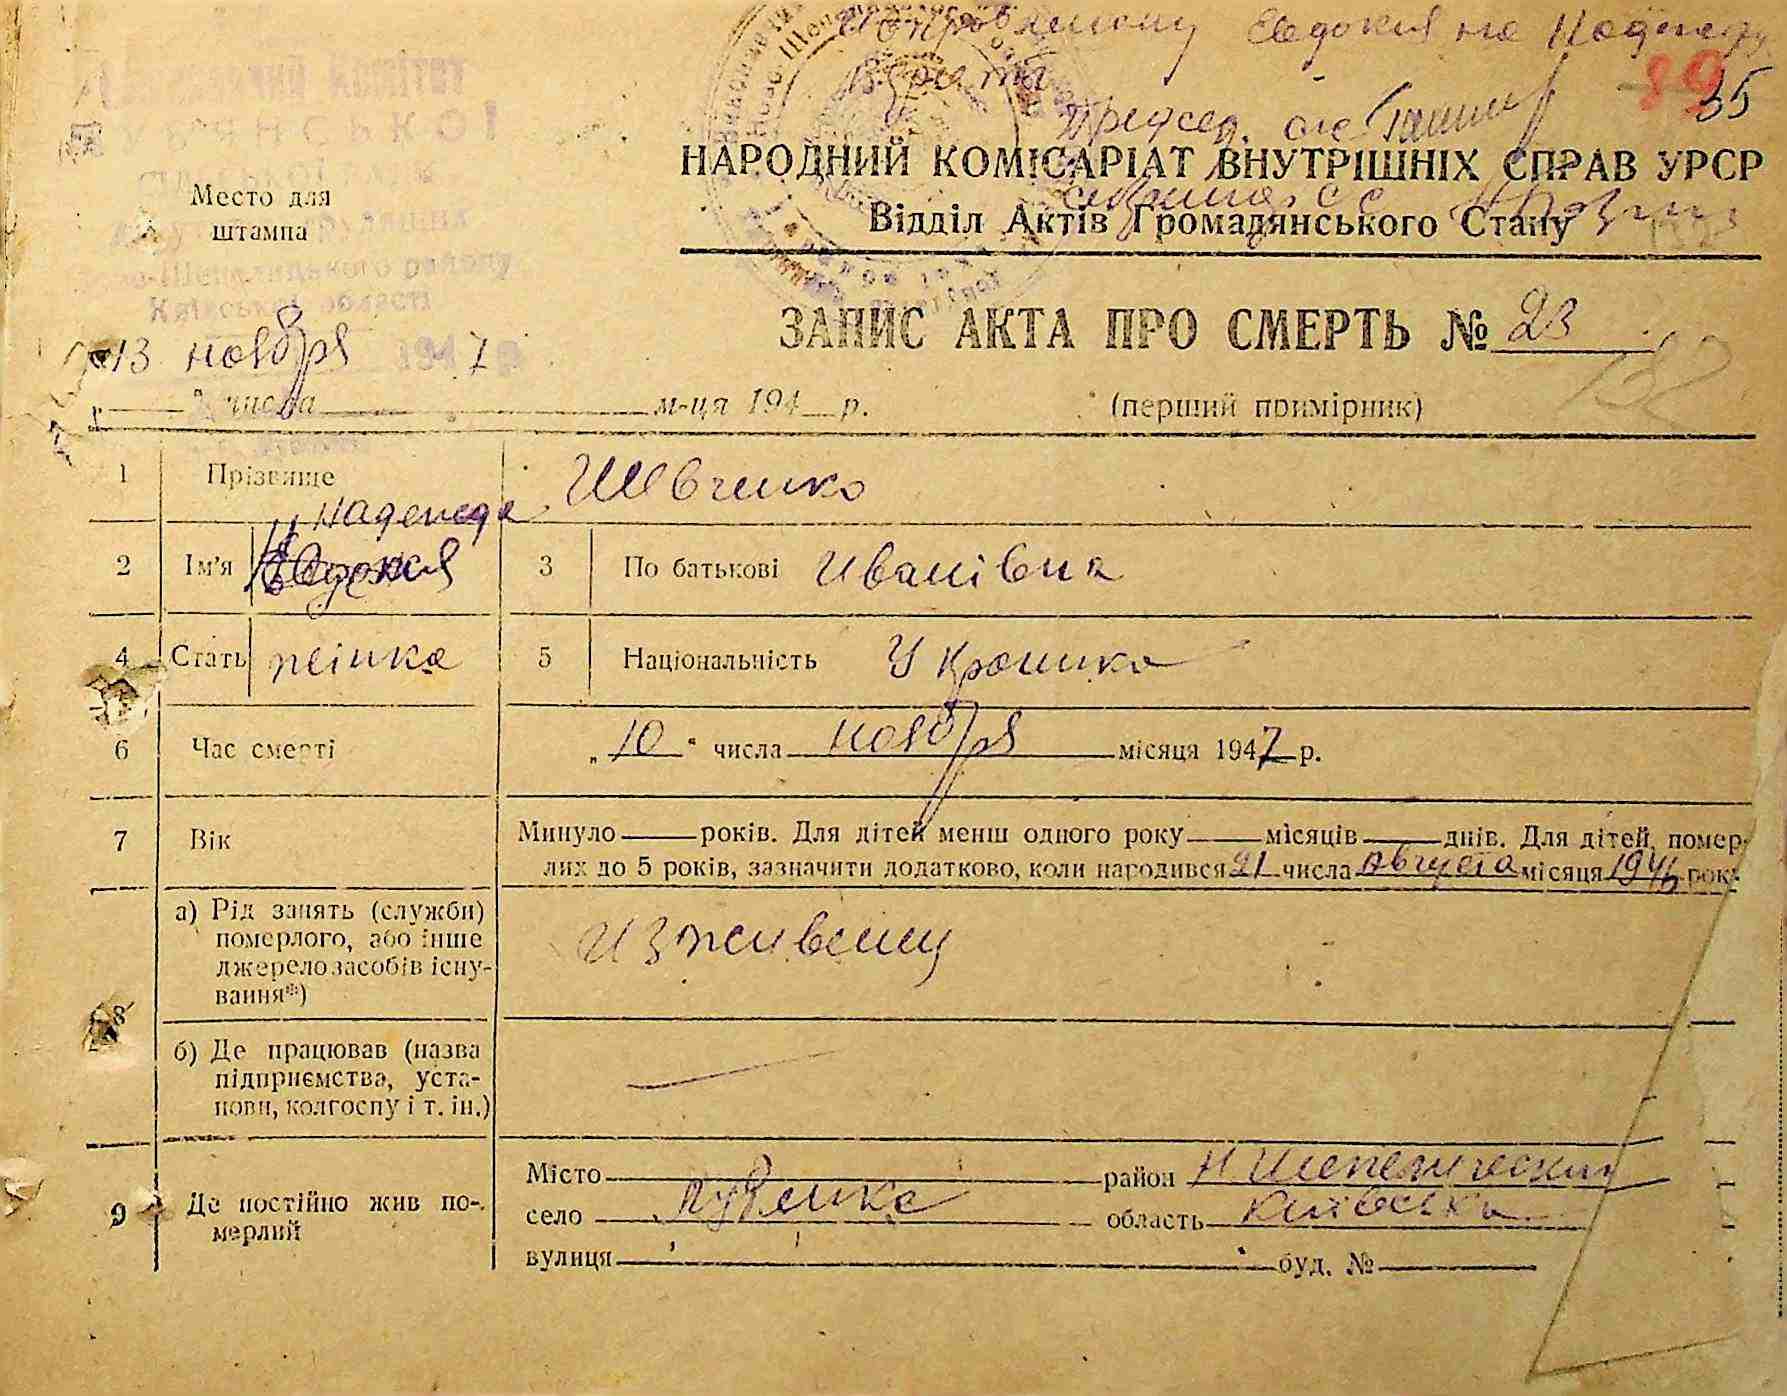 Исправленому Евдокия на Надежду
Верить
Председ. с/с
89 35
НАРОДНИЙ КОМІСАРІАТ ВНУТРІШНІХ СПРАВ УРСР
Відділ Актів Громадянського Стану
Место для
штампа
району
Київської області
13 ноября 1947 р
ЗАПИС АКТА ПРО СМЕРТЬ № 23
" числа м-ця 194 р.
(перший примірник)
132
1 Прізвище Шевченко
Надежда
2 Ім'я Евдокия 3 По батькові Иванівна
4 Стать жінка 5 Національність Украинка
6 Час смерті „10" числа ноября місяця 1947 р.
7 Вік Минуло — років. Для дітей менш одного року — місяців — днів. Для дітей, помер-
лих до 5 років, зазначити додатково, коли народився 21 числа Августа місяця 1946 року
8 а) Рід занять (служби)
померлого, або інше
джерело засобів існу-
вання*)
Изживенц
б) Де працював (назва
підприємства, уста-
нови, колгоспу і т. ін.)
9 Де постійно жив по-
мерлий
Місто район Н Шепелический
село область Київська
вулиця буд. №